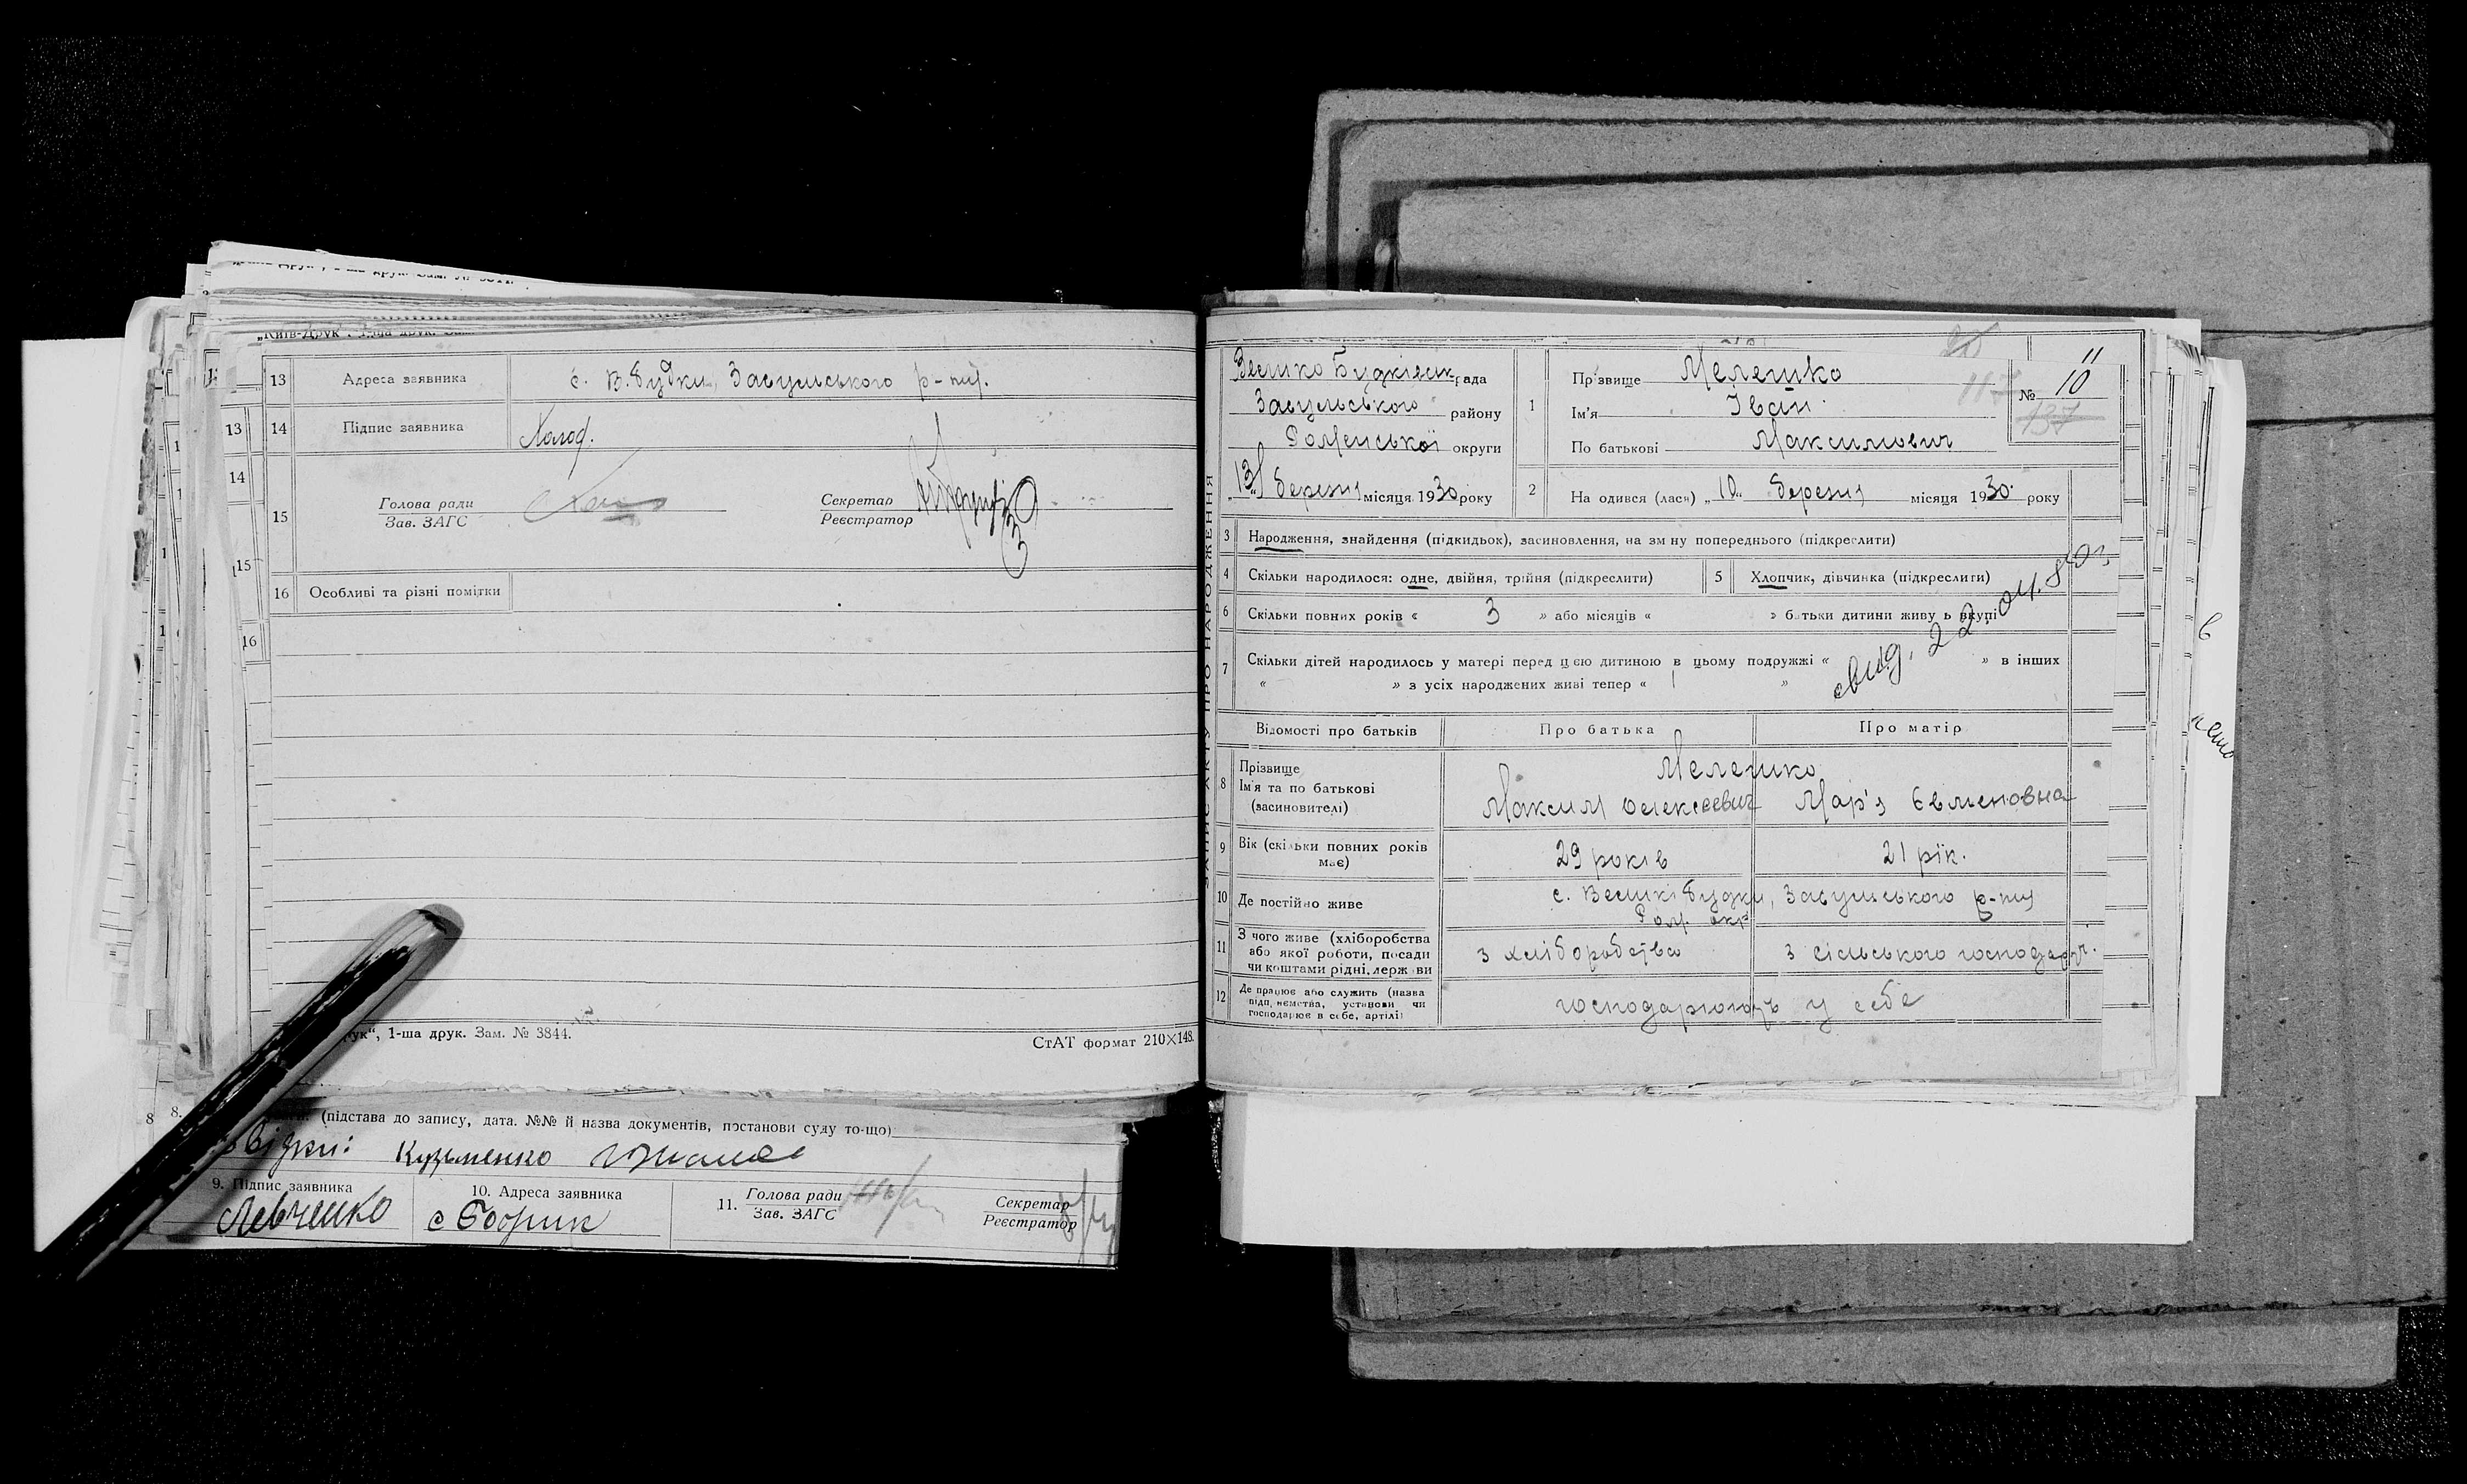 13 Адреса заявника с. В. Будки, Засульського р-ну.
14 Підпис заявника Холод.
15 Голова ради
Зав. ЗАГС
Секретар
Реєстратор
16 Особливі та різні помітки
13
14
15
16
1-ша друк. Зам. № 3844.
СтАТ формат 210×148.
(підстава до запису, дата. №№ й назва документів, постанови суду то-що)
Свідки: Кузьменко
9. Підпис заявника
Левченко
10. Адреса заявника
11. Голова ради
Зав. ЗАГС
Секретар
Реєстратор
ЗАПИС АКТУ ПРО НАРОДЖЕННЯ
Велико Будківськ рада
Засульського району
Роменської округи
„13“ березня місяця 1930 року
1 Прізвище Мелешко
Ім'я Іван
По батькові Максимович
11
№ 10
137
2 На одився (лася) „10“ березня місяця 1930 року
3 Народження, знайдення (підкидьок), засиновлення, на зм ну попереднього (підкреслити)
4 Скільки народилося: одне, двійня, трійня (підкреслити)
5 Хлопчик, дівчинка (підкреслити)
6 Скільки повних років « 3 » або місяців « » батьки дитини живу ь вкупі
7 Скільки дітей народилось у матері перед цією дитиною в цьому подружжі « » в інших
« » з усіх народжених живі тепер « »
свид. 22.04.80г.
Відомості про батьків Про батька Про матір
8 Прізвище
Ім'я та по батькові
(засиновителі)
Мелешко
Максим Олексеевич Мар'я Євменовна
9 Вік (скільки повних років має)
29 років 21 рік.
10 Де постійно живе с. Великі Будки, Засульського р-ну
Ром. окр
11 З чого живе (хліборобства
або якої роботи, посади
чи коштами рідні, держ ви
з хліборобства з сільського господарч.
12 Де працює або служить (назва
підп иємства, установи чи
господарює в себе, артілі)
господарюють у себе